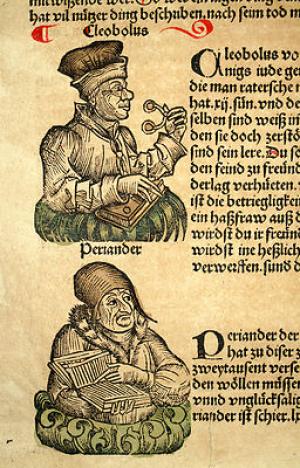 hat vil nützer ding beschriben. nach seim tod m
Cleobolus
Cleobolus vo
nigs iude ge
die man ratersche n
hat. xij. sün. vnd de
selben sind weiß in
den sie doch zerstö
sind sein lere. Du s
den feind zu freünd
derlag verhüeten.
ist die betriegligkei
ein haßfraw auß d
wirdst du ir freünd
wirdst ine heßlich
verwerffen. sund d
Periander
Periander der
hat zu diser z
zweytausent verse
den wöllen müsse
vnnd vnglücksalig
riander ist schier. lx